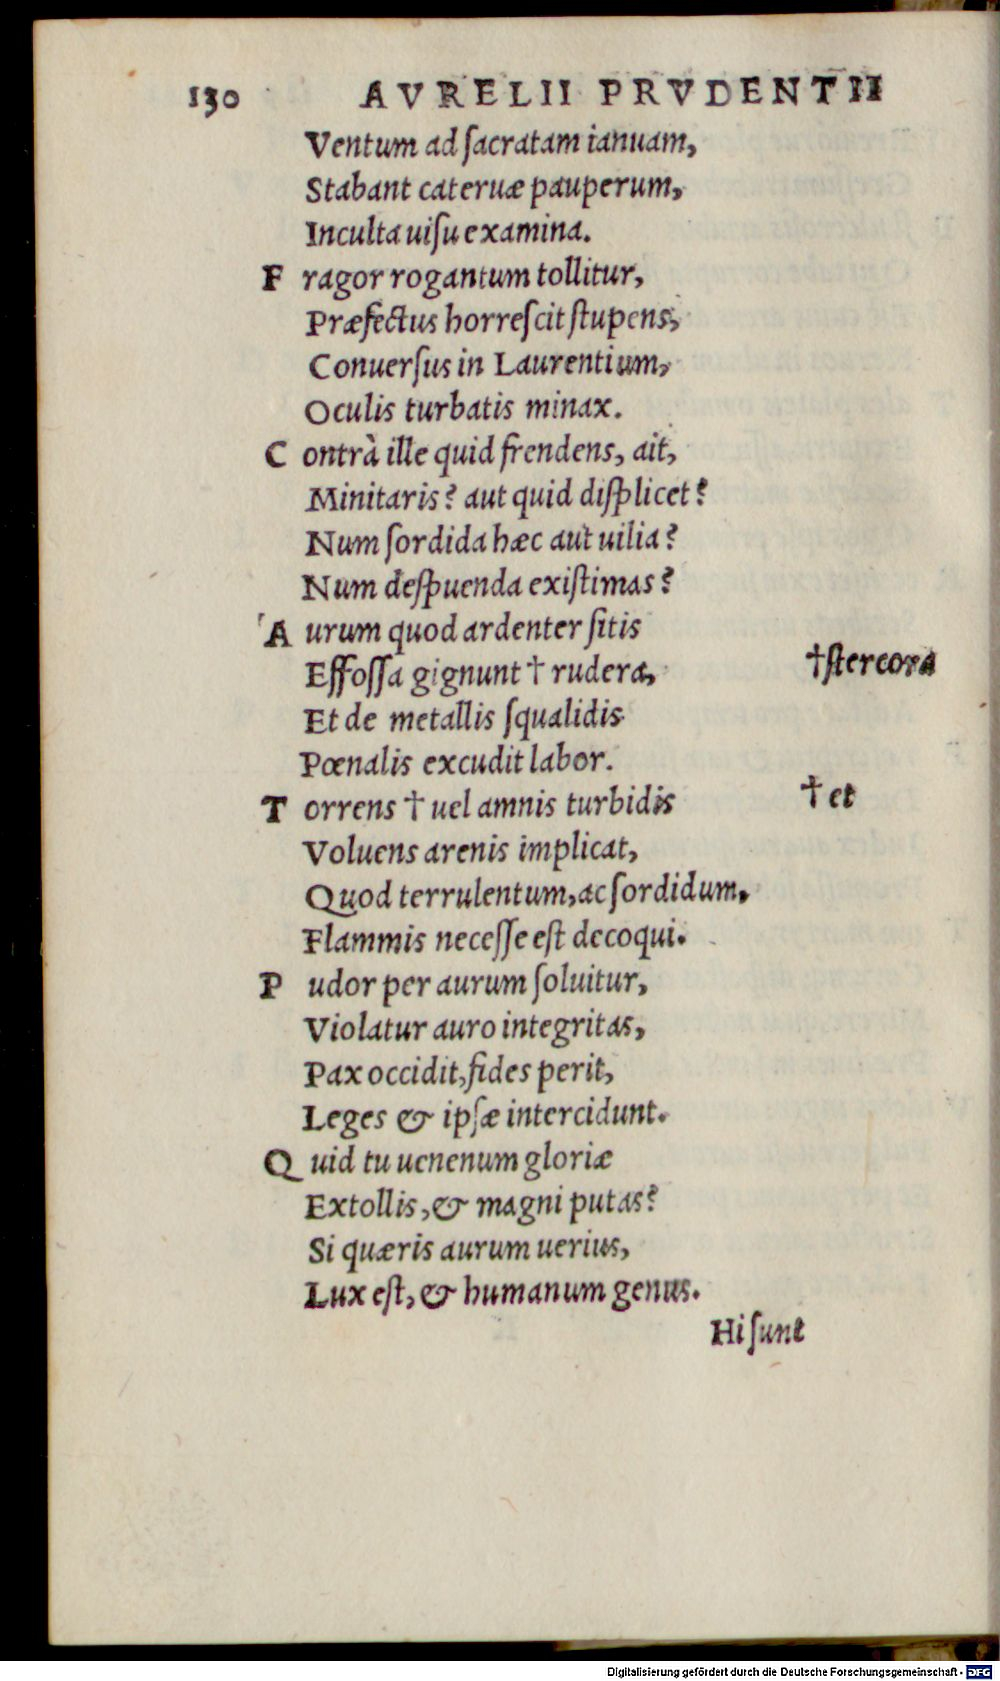 130 AVRELII PRVDENTII
Ventum ad ſacratam ianuam,
Stabant cateruæ pauperum,
Inculta uiſu examina.
F ragor rogantum tollitur,
Præfectus horreſcit ſtupens,
Conuerſus in Laurentium,
Oculis turbatis minax.
C ontrà ille quid frendens, ait,
Minitaris? aut quid diſplicet?
Num ſordida hæc aut uilia?
Num deſpuenda exiſtimas?
A urum quod ardenter ſitis
Effoſſa gignunt † rudera, †ſtercora
Et de metallis ſqualidis
Pœnalis excudit labor.
T orrens † uel amnis turbidis † et
Voluens arenis implicat,
Quod terrulentum, ac ſordidum,
Flammis neceſſe eſt decoqui.
P udor per aurum ſoluitur,
Violatur auro integritas,
Pax occidit, fides perit,
Leges & ipſæ intercidunt.
Q uid tu uenenum gloriæ
Extollis, & magni putas?
Si quæris aurum uerius,
Lux eſt, & humanum genus.
Hi ſunt
Digitalisierung gefördert durch die Deutsche Forschungsgemeinschaft - DFG